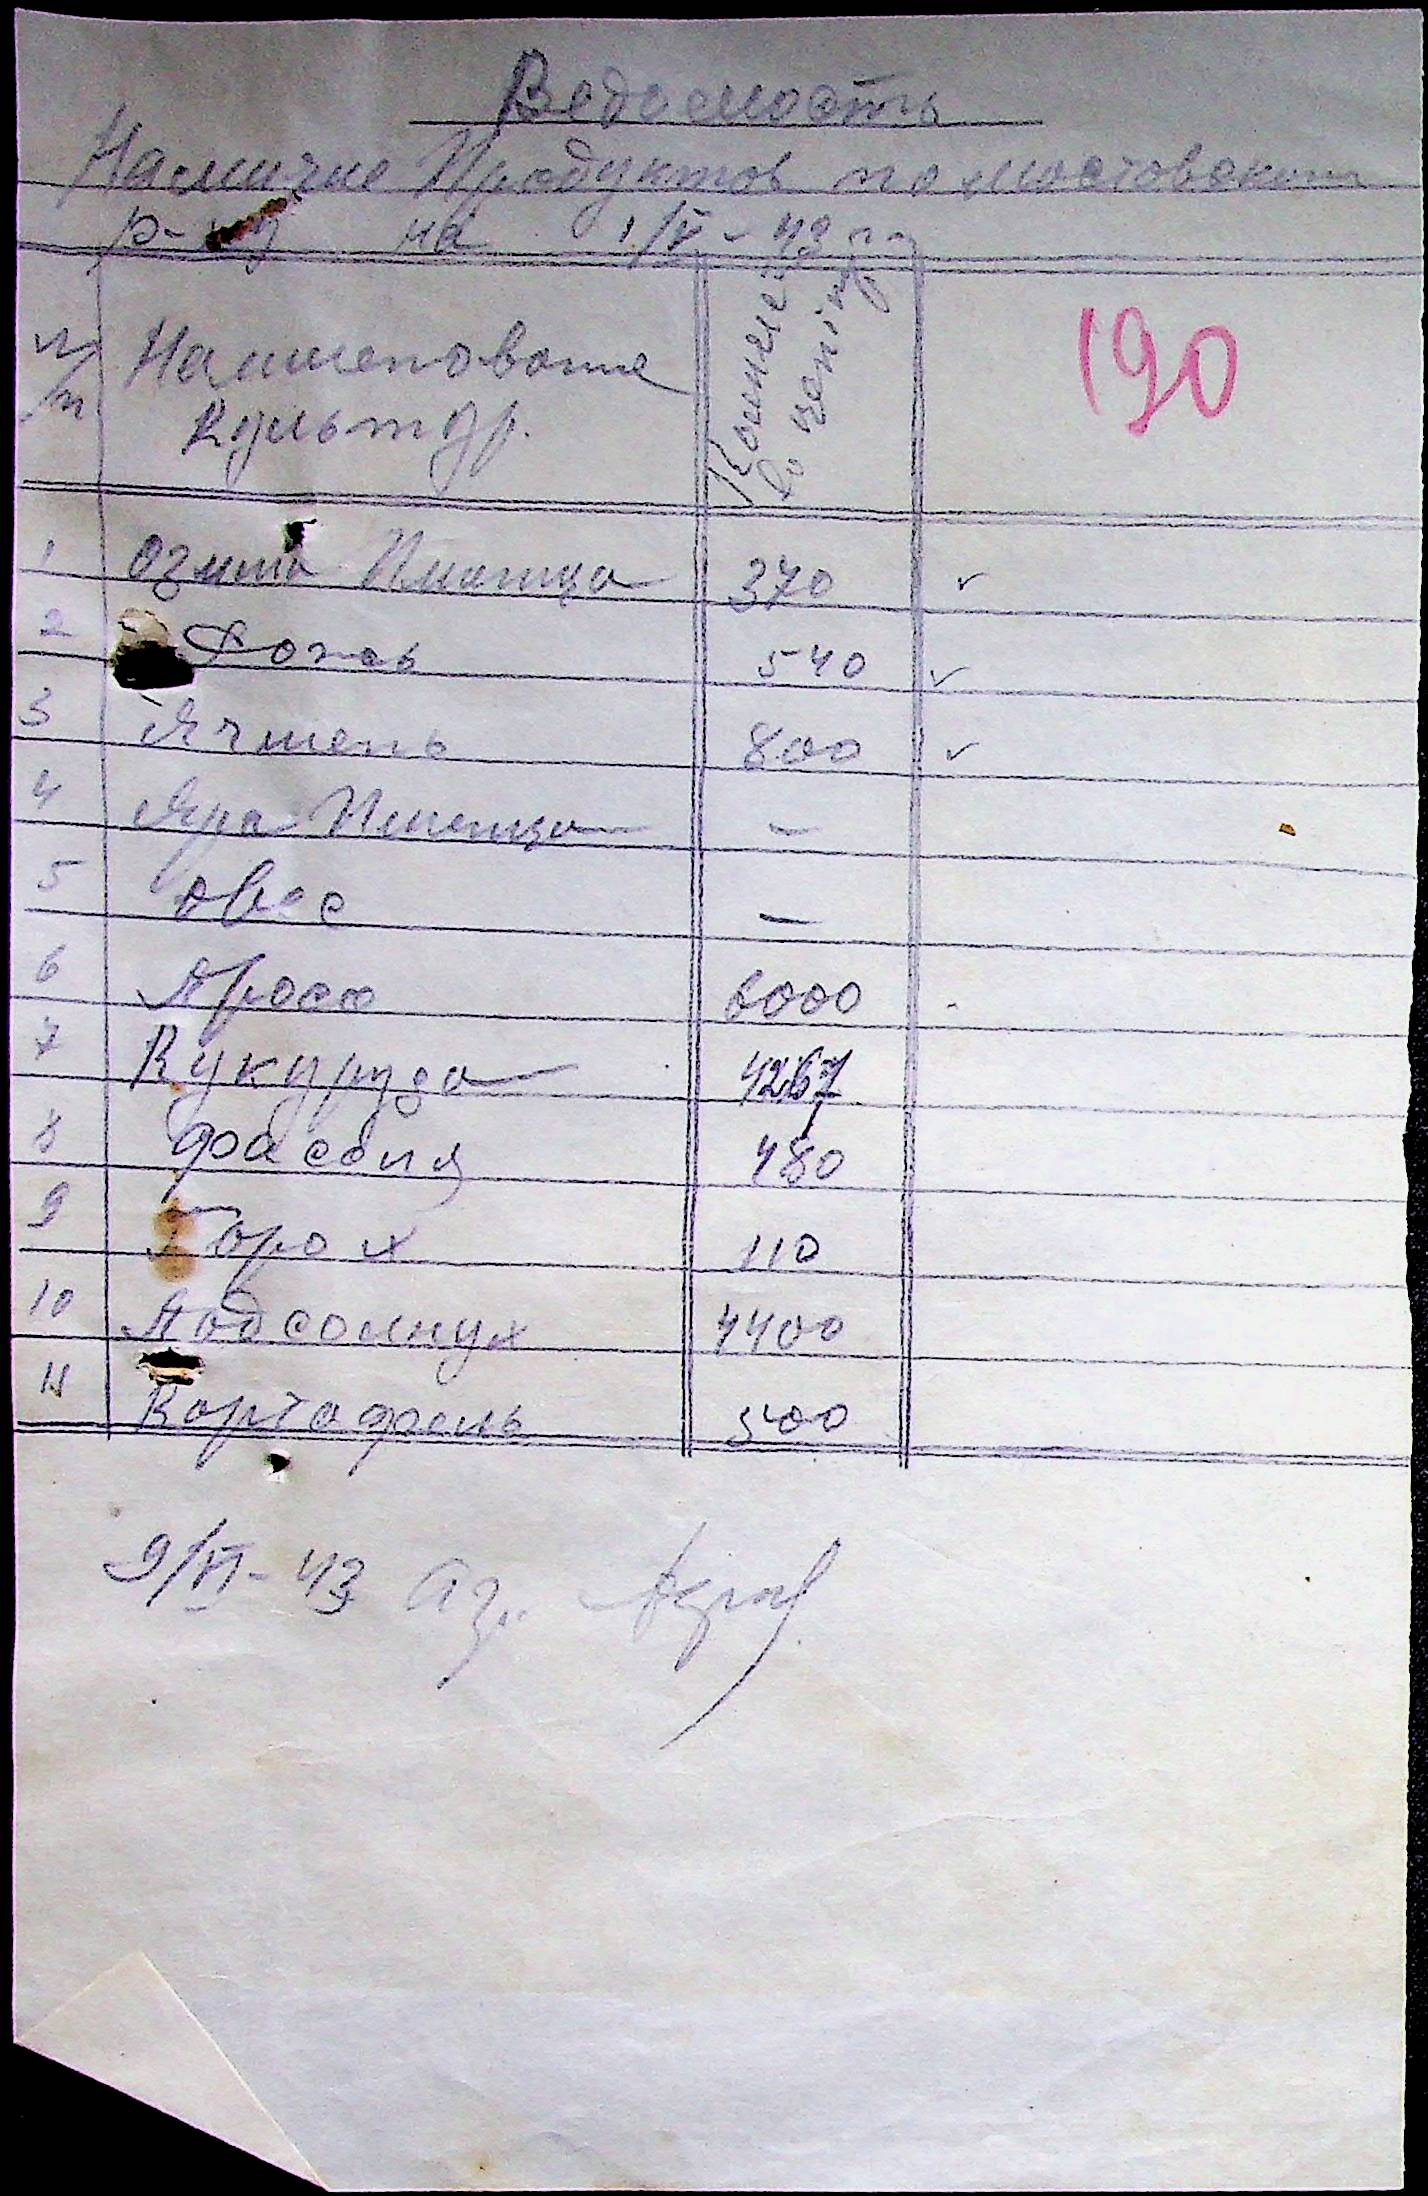 Ведомость
Наличие Продуктов по мостовским
р-ну на 1/V-43 г.
п/п Наименование Культур. 190
1 Озима Пшеница 370 ✓
2 Рожь 540 ✓
3 Ячмень 800 ✓
4 Яра Пшеница –
5 Овес –
6 Просо 6000
7 Кукуруза 4267
8 Фасоля 480
9 Горох 110
10 Подсолнух 4400
11 Картофель 500
9/VI-43